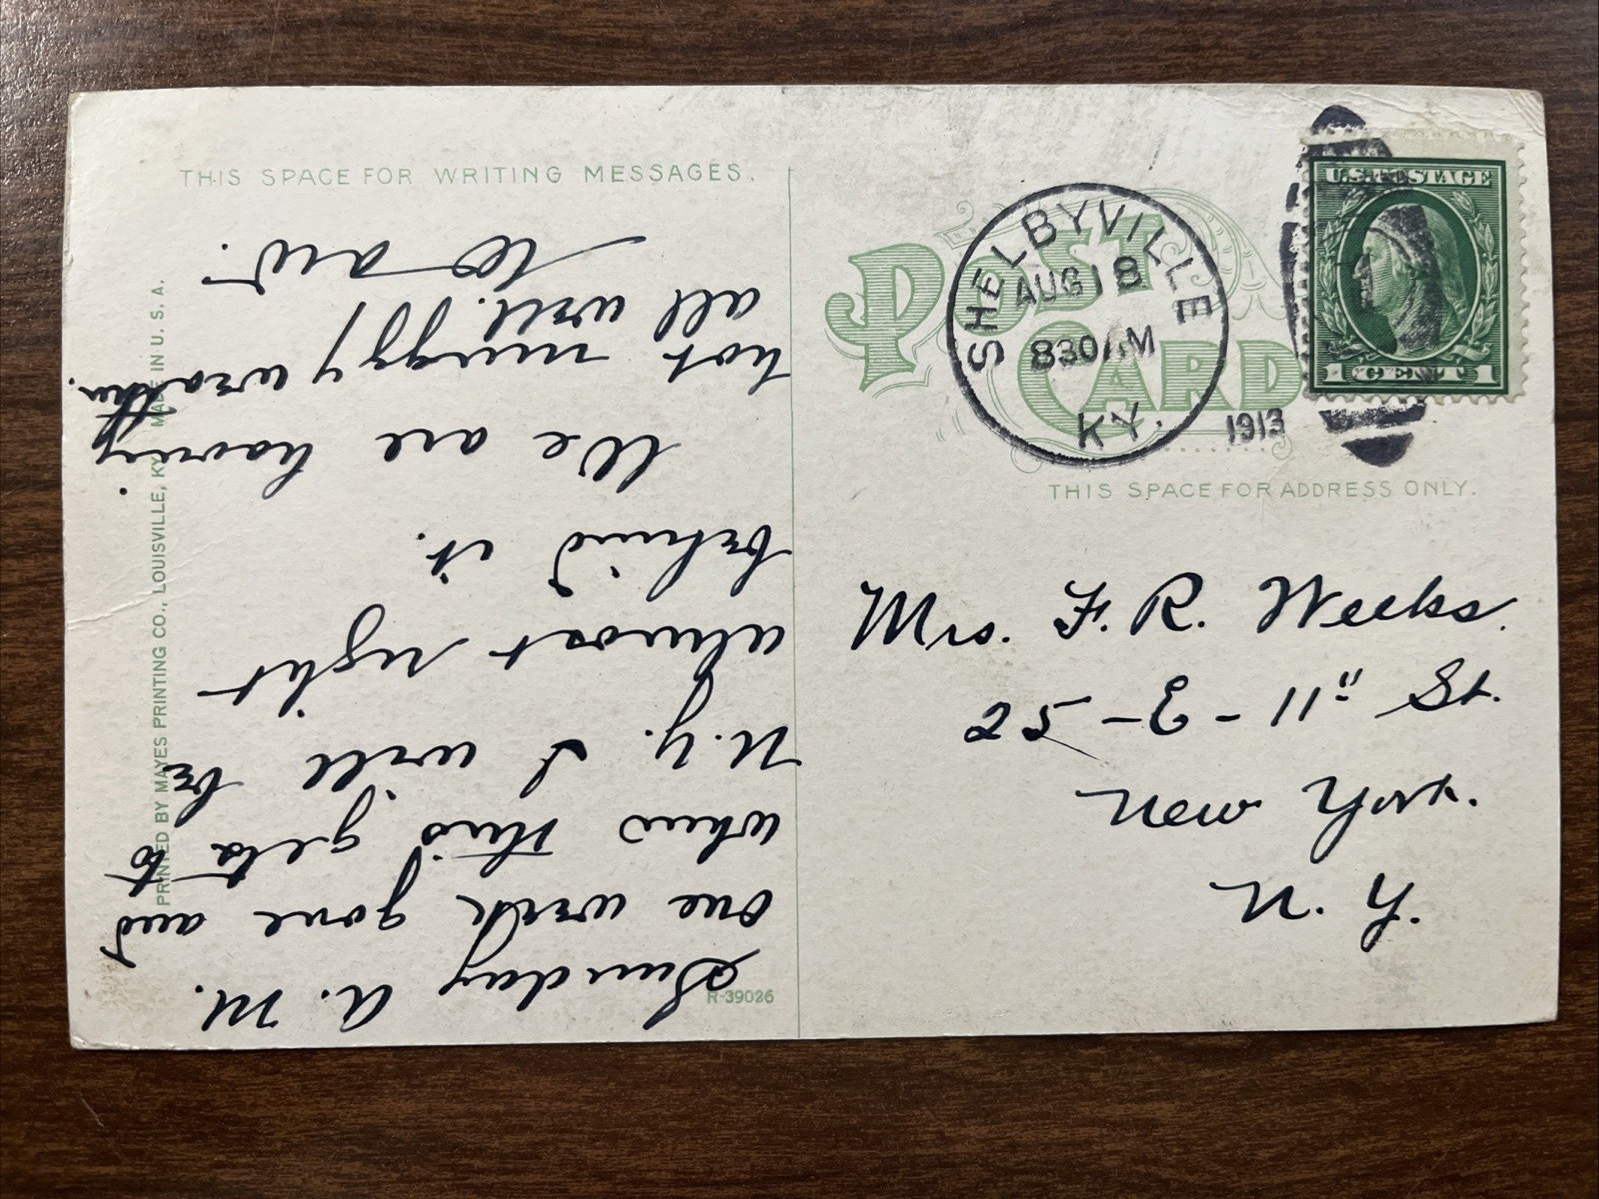 THIS SPACE FOR WRITING MESSAGES.
Sunday A. M.
one week gone and
when this gets to
N.Y. I will be
almost right
behind it.
We are having
hot muggy weather.
all well.
PRINTED BY MAYES PRINTING CO., LOUISVILLE, KY. MADE IN U. S. A.
R-39026
POST CARD
SHELBYVILLE
AUG 18
830 AM
KY.
1913
U.S. POSTAGE
1 CENT 1
THIS SPACE FOR ADDRESS ONLY.
Mrs. F. R. Weeks.
25-3-11" St.
New York.
N. Y.